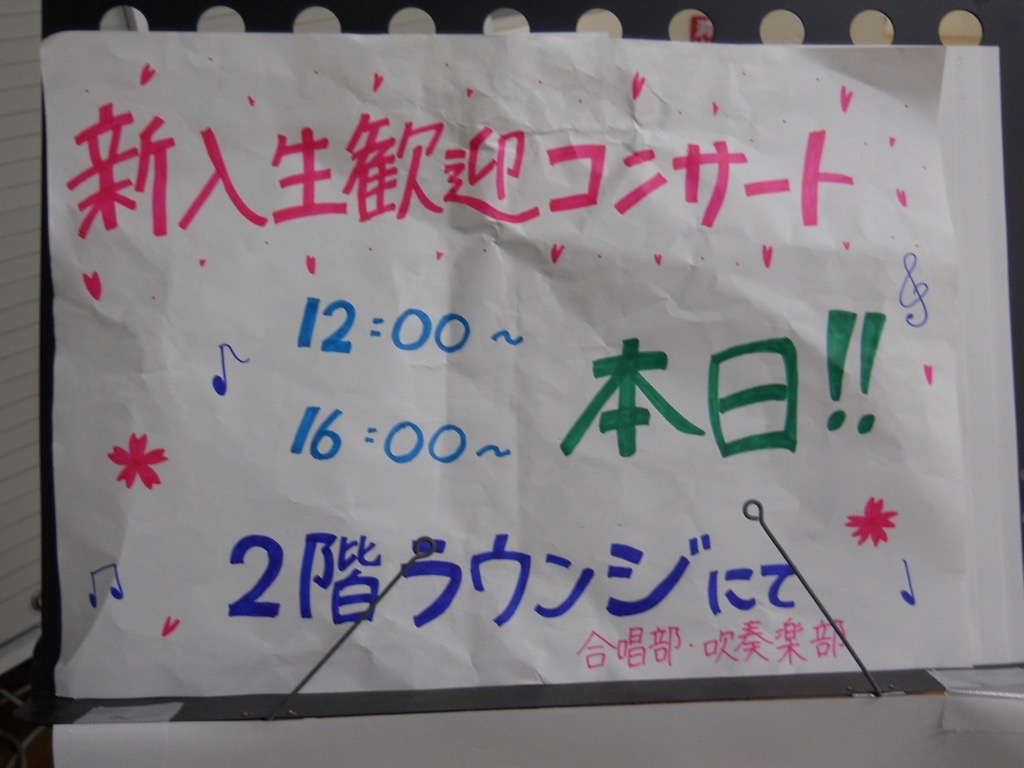 新入生歓迎コンサート
12:00~
16:00~
本日!!
2階ラウンジにて
合唱部・吹奏楽部